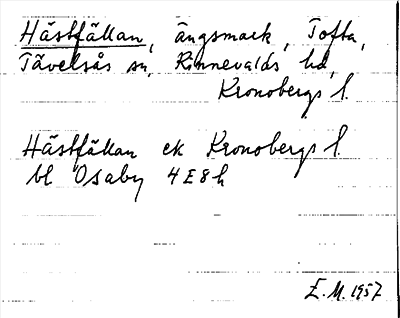 Hästfällan, ängsmark, Tofta,
Tävelsås sn, Kinnevalds hd,
Kronobergs l.
Hästfällan ek Kronobergs l.
bl Osaby 4E8h
E.M. 1957